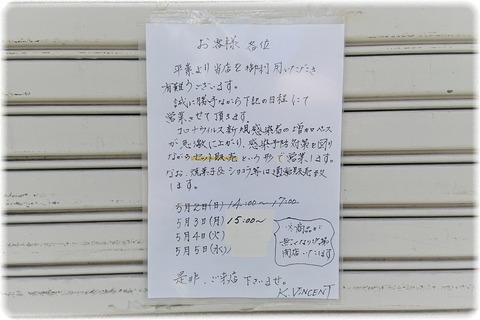 お客様 各位
平素より当店を御利用いただき
有難うございます。
誠に勝手ながら下記の日程にて
営業させて頂きます。
コロナウイルス新規感染者の増加ペース
が急激に上がり、感染予防対策を図り
ながらセット販売という形で営業します。
なお、焼菓子&ショコラ等は通常販売致
します。
5月2日(日) 14:00〜17:00
5月3日(月) 15:00〜
5月4日(火)
5月5日(水)
※商品が
無くなり次第
閉店いたします
是非、ご来店下さいませ。
K.VINCENT